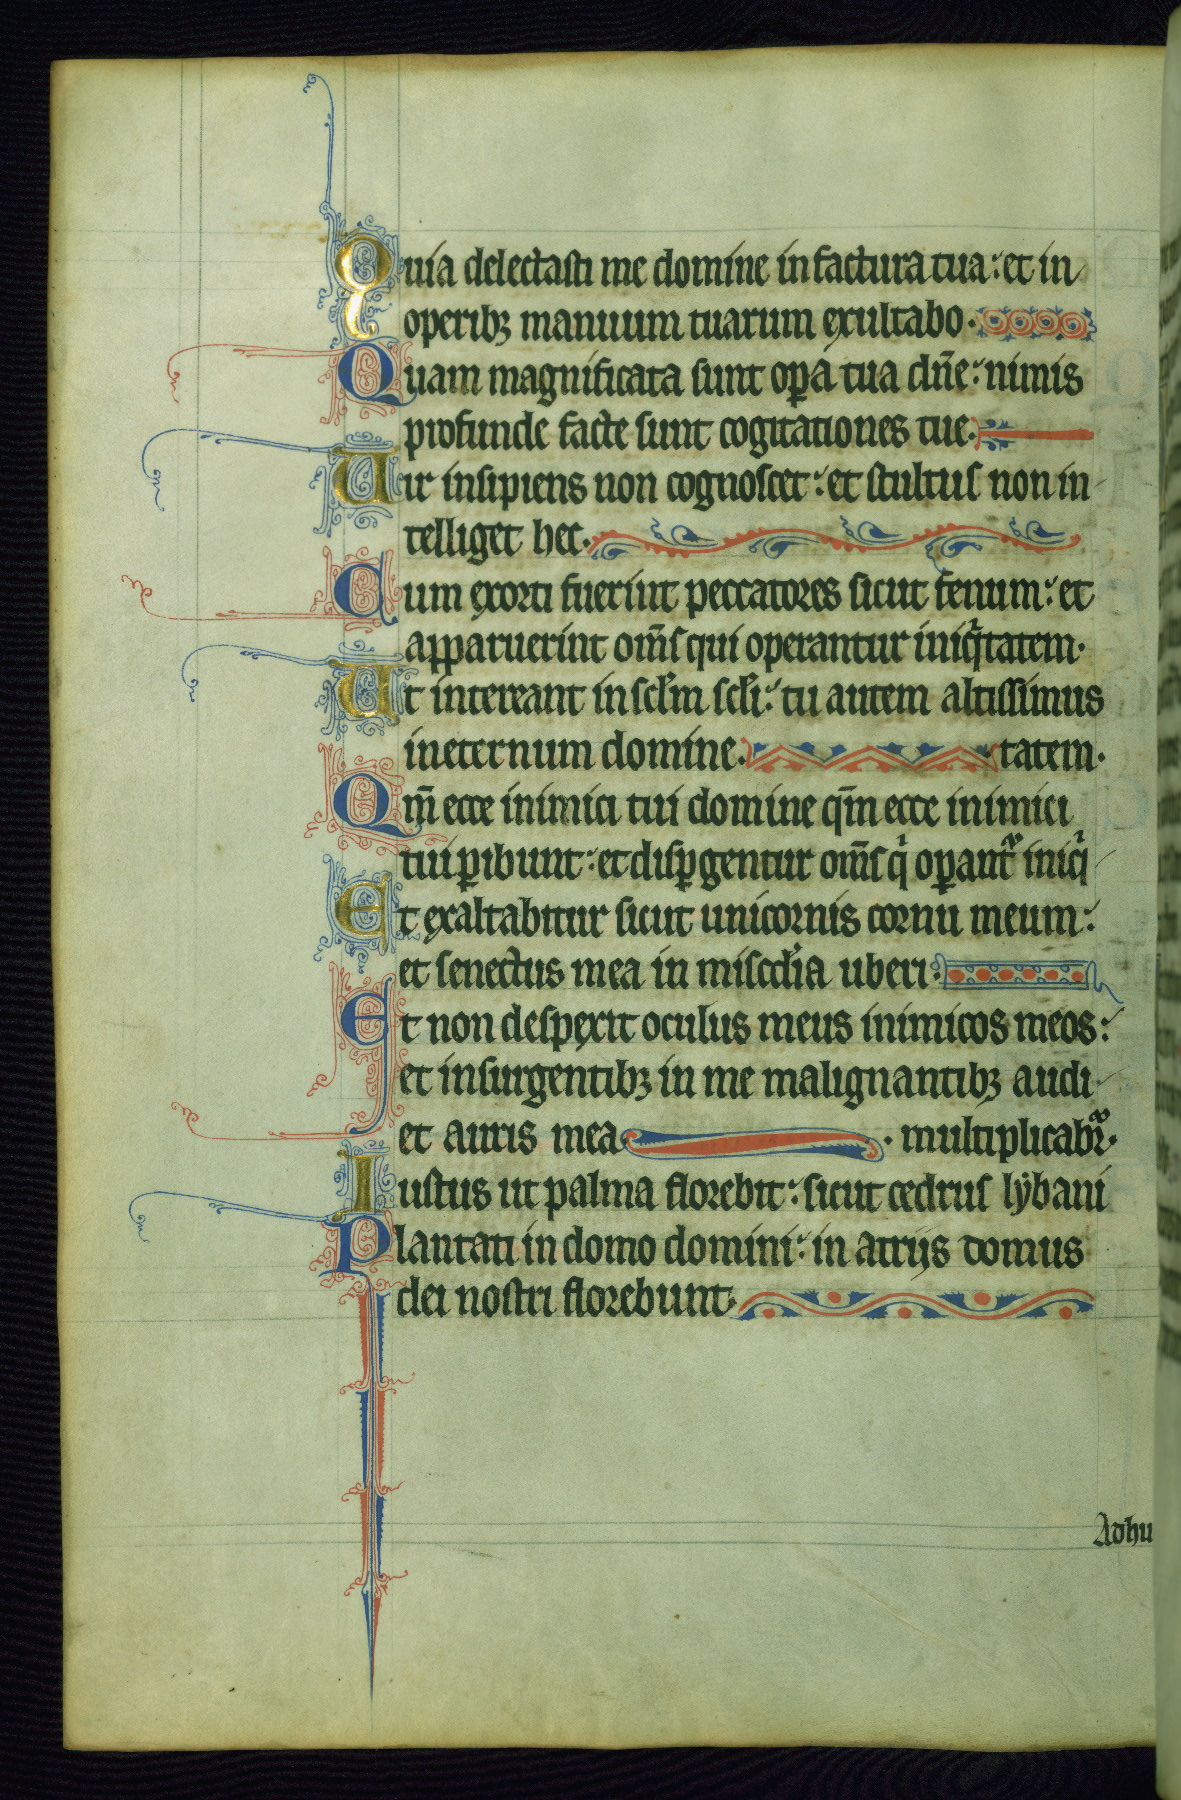 Quia delectasti me domine in factura tua: et in
operibꝫ manuum tuarum exultabo.
Quam magnificata sunt oꝑa tua dn̄e: nimis
profunde facte sunt cogitationes tue.
Uir insipiens non cognoscet: et stultus non in
telliget hec.
Cum exorti fuerint peccatores sicut fenum: et
apparuerint om̄s qui operantur iniqͥtatem.
Ut intereant in scl̄m scl̄i: tu autem altissimus
in eternum domine. tatem.
Qm̄ ecce inimici tui domine qm̄ ecce inimici
tui ꝑibunt: et disꝑgentur om̄s qͥ oꝑant᷑ iniqͥ
Et exaltabitur sicut unicornis cornu meum:
et senectus mea in miscd̄ia uberi.
Et non despexit oculus meus inimicos meos:
et insurgentibꝫ in me malignantibꝫ audi
et auris mea. multiplicabr᷑.
Iustus ut palma florebit: sicut cedrus lybani
Plantati in domo domini: in atrijs domus
dei nostri florebunt.
Adhu